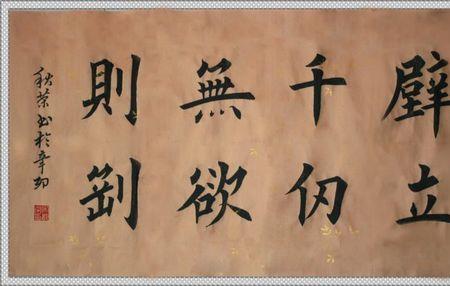 壁立
千仞
無欲
則剛
秋荣书於辛卯